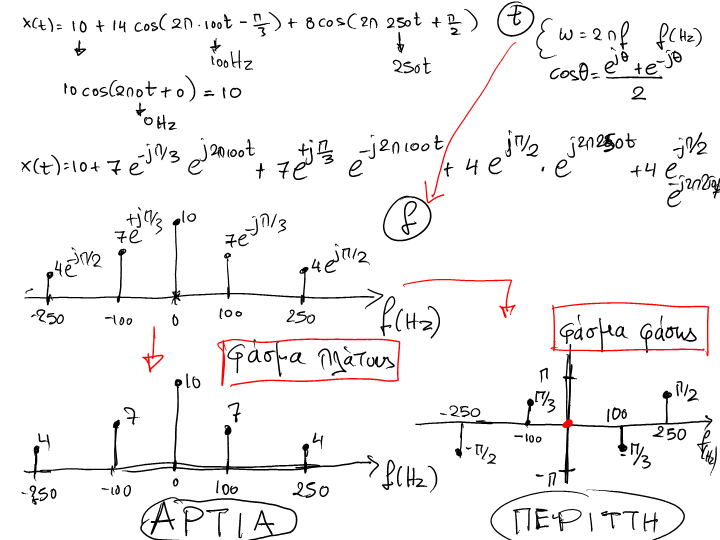 x(t)= 10 + 14 cos(2π·100t - π/3) + 8 cos(2π 250t + π/2)
t
ω = 2πf f(Hz)
100Hz
250t
cosθ = (e^{jθ} + e^{-jθ})/2
10 cos(2π0t + 0) = 10
0Hz
x(t)=10+ 7 e^{-jπ/3} e^{j2π100t} + 7e^{+jπ/3} e^{-j2π100t} + 4 e^{jπ/2} · e^{j2π250t} + 4 e^{-jπ/2}
f
4e^{-jπ/2} 7e^{+jπ/3} 10 7e^{-jπ/3} 4e^{jπ/2}
-250 -100 0 100 250 f(Hz)
φάσμα πλάτους
10
4 7 7 4
-250 -100 0 100 250 f(Hz)
ΑΡΤΙΑ
φάσμα φάσης
π
-250 π/3 100 π/2
-π/2 -100 -π/3 250 f(Hz)
-π
ΠΕΡΙΤΤΗ